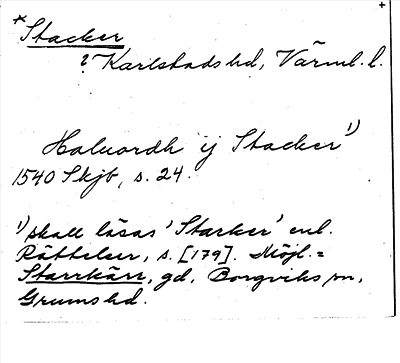 *Stacker +
? Karlstads hd, Värml. l.
Haluordh ij Stacker 1)
1540 Skjb, s. 24.
1) skall läsas 'Starker' enl.
Rättelser, s. [179]. Möjl. =
Starrkärr, gd, Borgviks sn,
Grums hd.